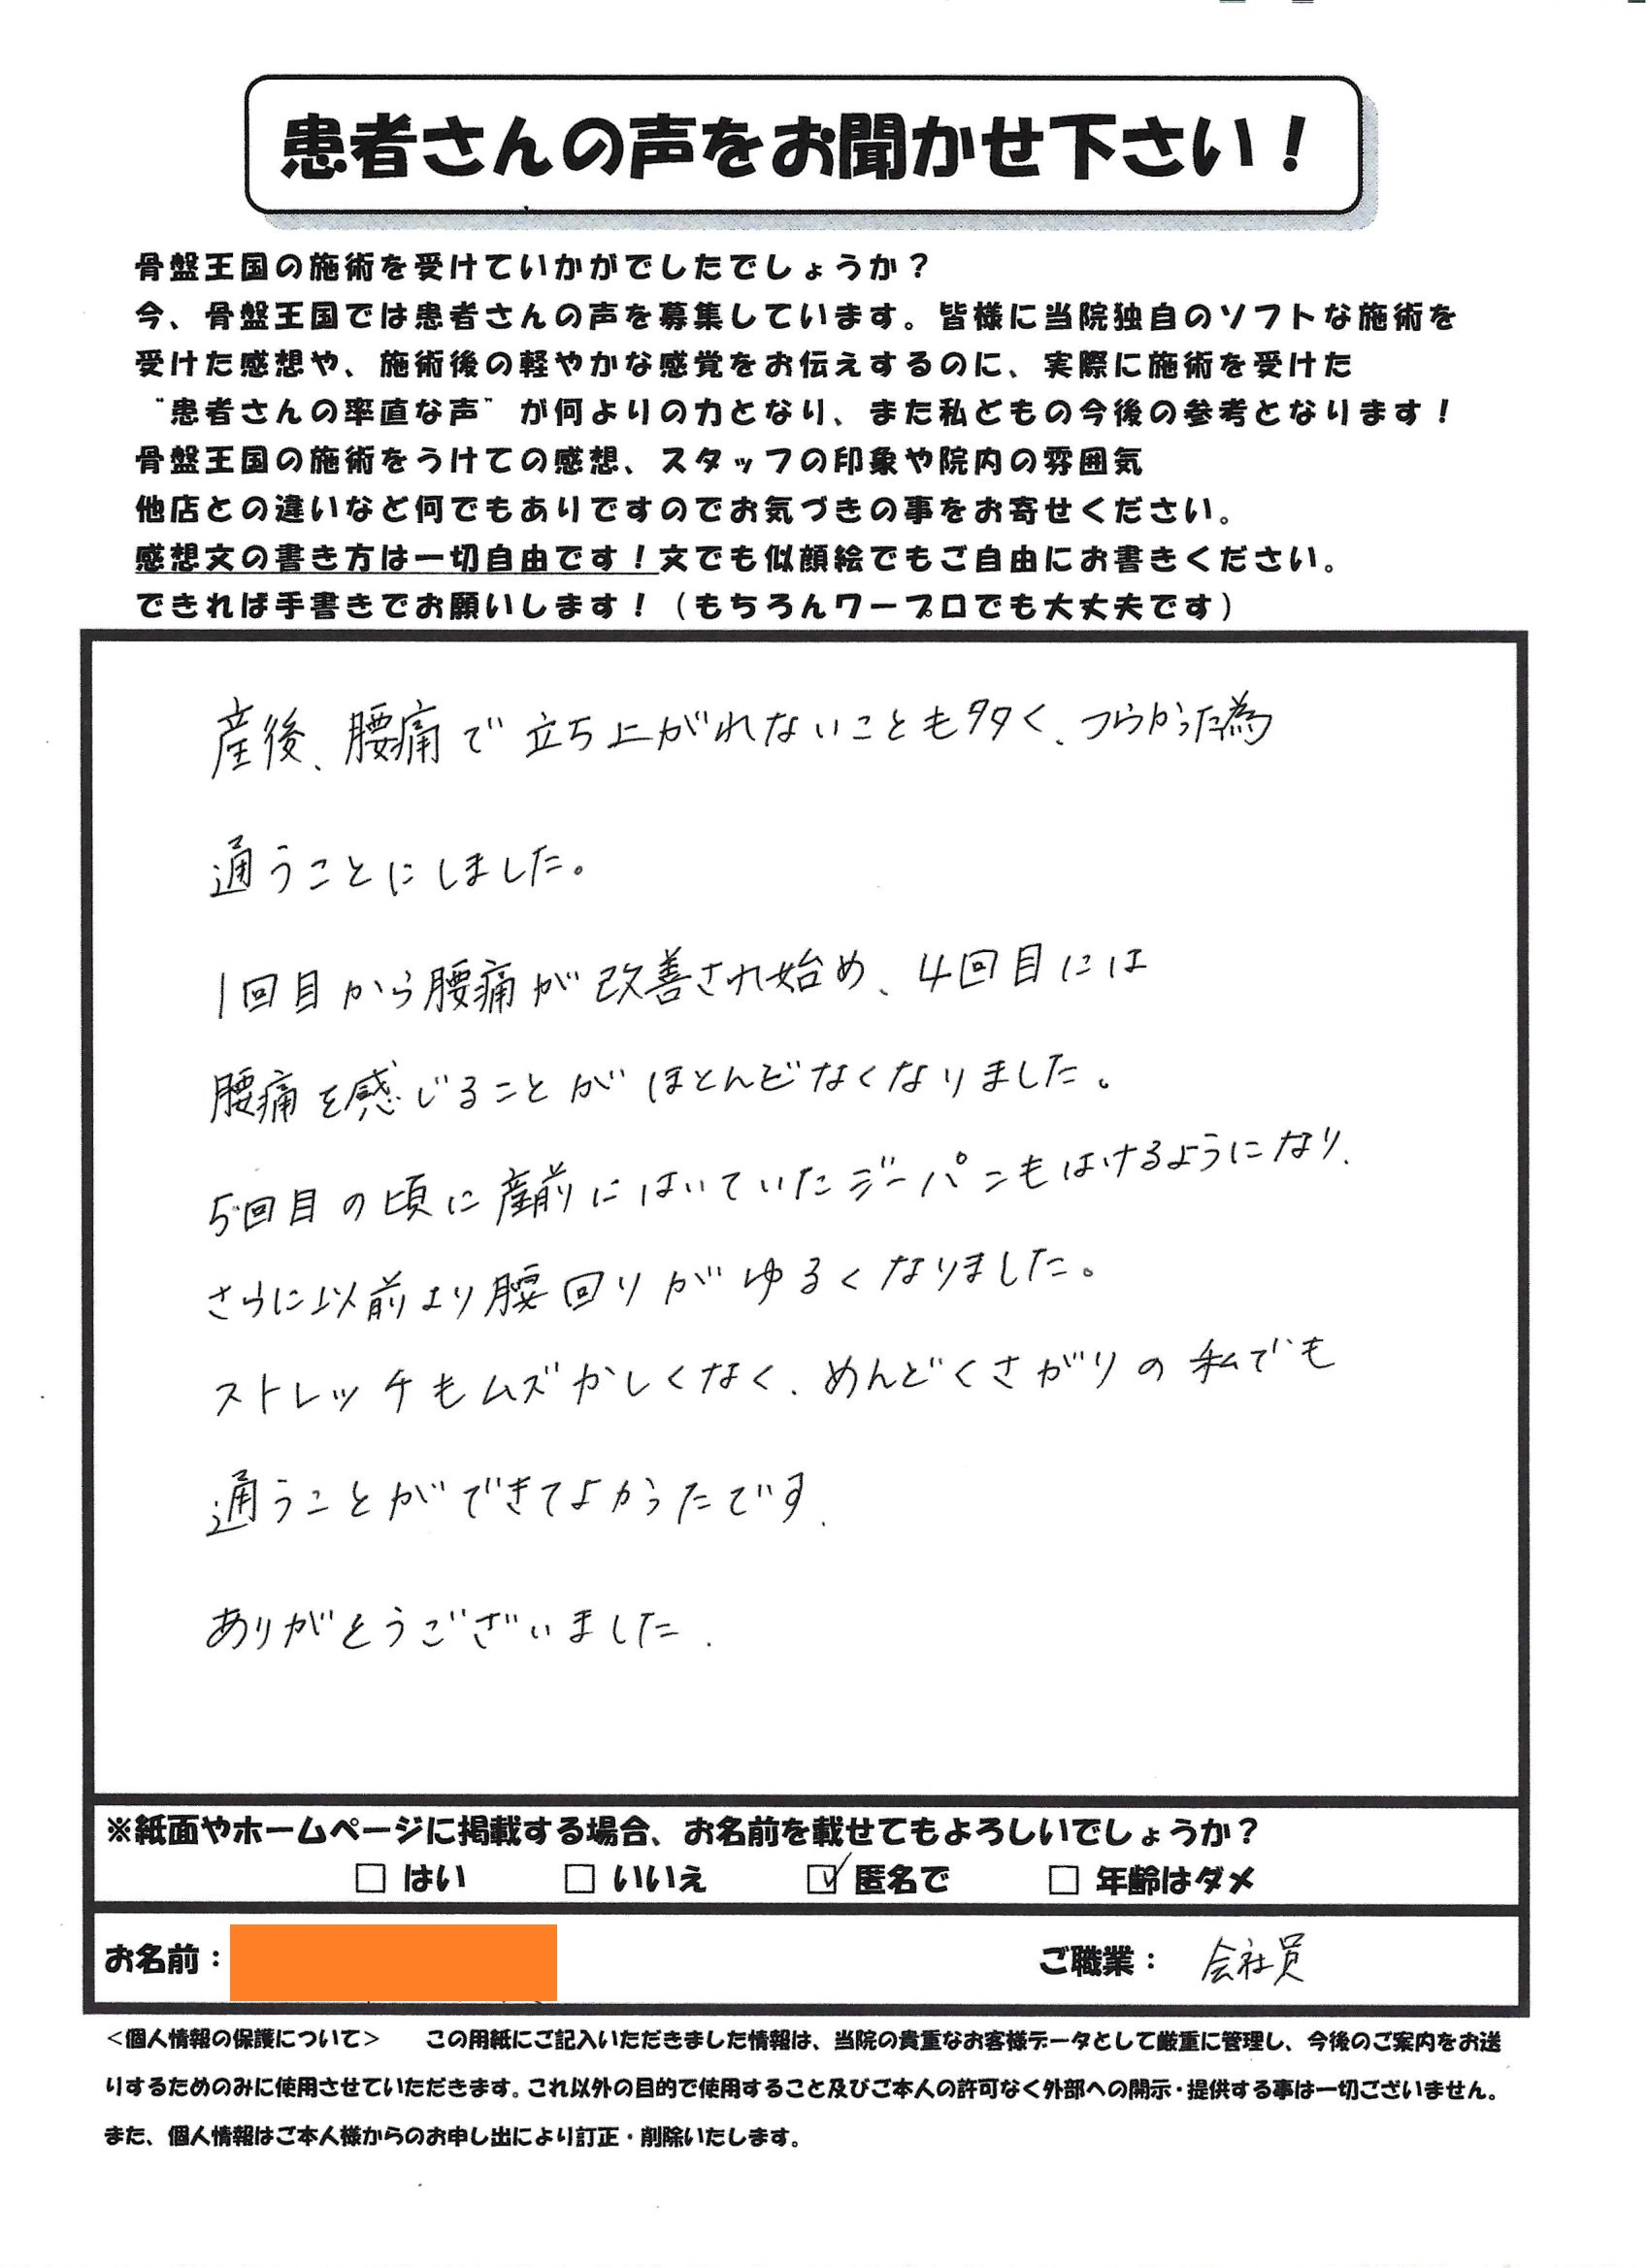 患者さんの声をお聞かせ下さい！
骨盤王国の施術を受けていかがでしたでしょうか？
今、骨盤王国では患者さんの声を募集しています。皆様に当院独自のソフトな施術を
受けた感想や、施術後の軽やかな感覚をお伝えするのに、実際に施術を受けた
“患者さんの率直な声”が何よりの力となり、また私どもの今後の参考となります！
骨盤王国の施術をうけての感想、スタッフの印象や院内の雰囲気
他店との違いなど何でもありですのでお気づきの事をお寄せください。
感想文の書き方は一切自由です！文でも似顔絵でもご自由にお書きください。
できれば手書きでお願いします！（もちろんワープロでも大丈夫です）
産後、腰痛で立ち上がれないことも多く、つらかった為
通うことにしました。
1回目から腰痛が改善され始め、4回目には
腰痛を感じることがほとんどなくなりました。
5回目の頃に産前にはいていたジーパンもはけるようになり、
さらに以前より腰回りがゆるくなりました。
ストレッチもムズかしくなく、めんどくさがりの私でも
通うことができてよかったです.
ありがとうございました.
※紙面やホームページに掲載する場合、お名前を載せてもよろしいでしょうか？
□ はい □ いいえ ☑ 匿名で □ 年齢はダメ
お名前： ご職業： 会社員
＜個人情報の保護について＞ この用紙にご記入いただきました情報は、当院の貴重なお客様データとして厳重に管理し、今後のご案内をお送
りするためのみに使用させていただきます。これ以外の目的で使用すること及びご本人の許可なく外部への開示・提供する事は一切ございません。
また、個人情報はご本人様からのお申し出により訂正・削除いたします。